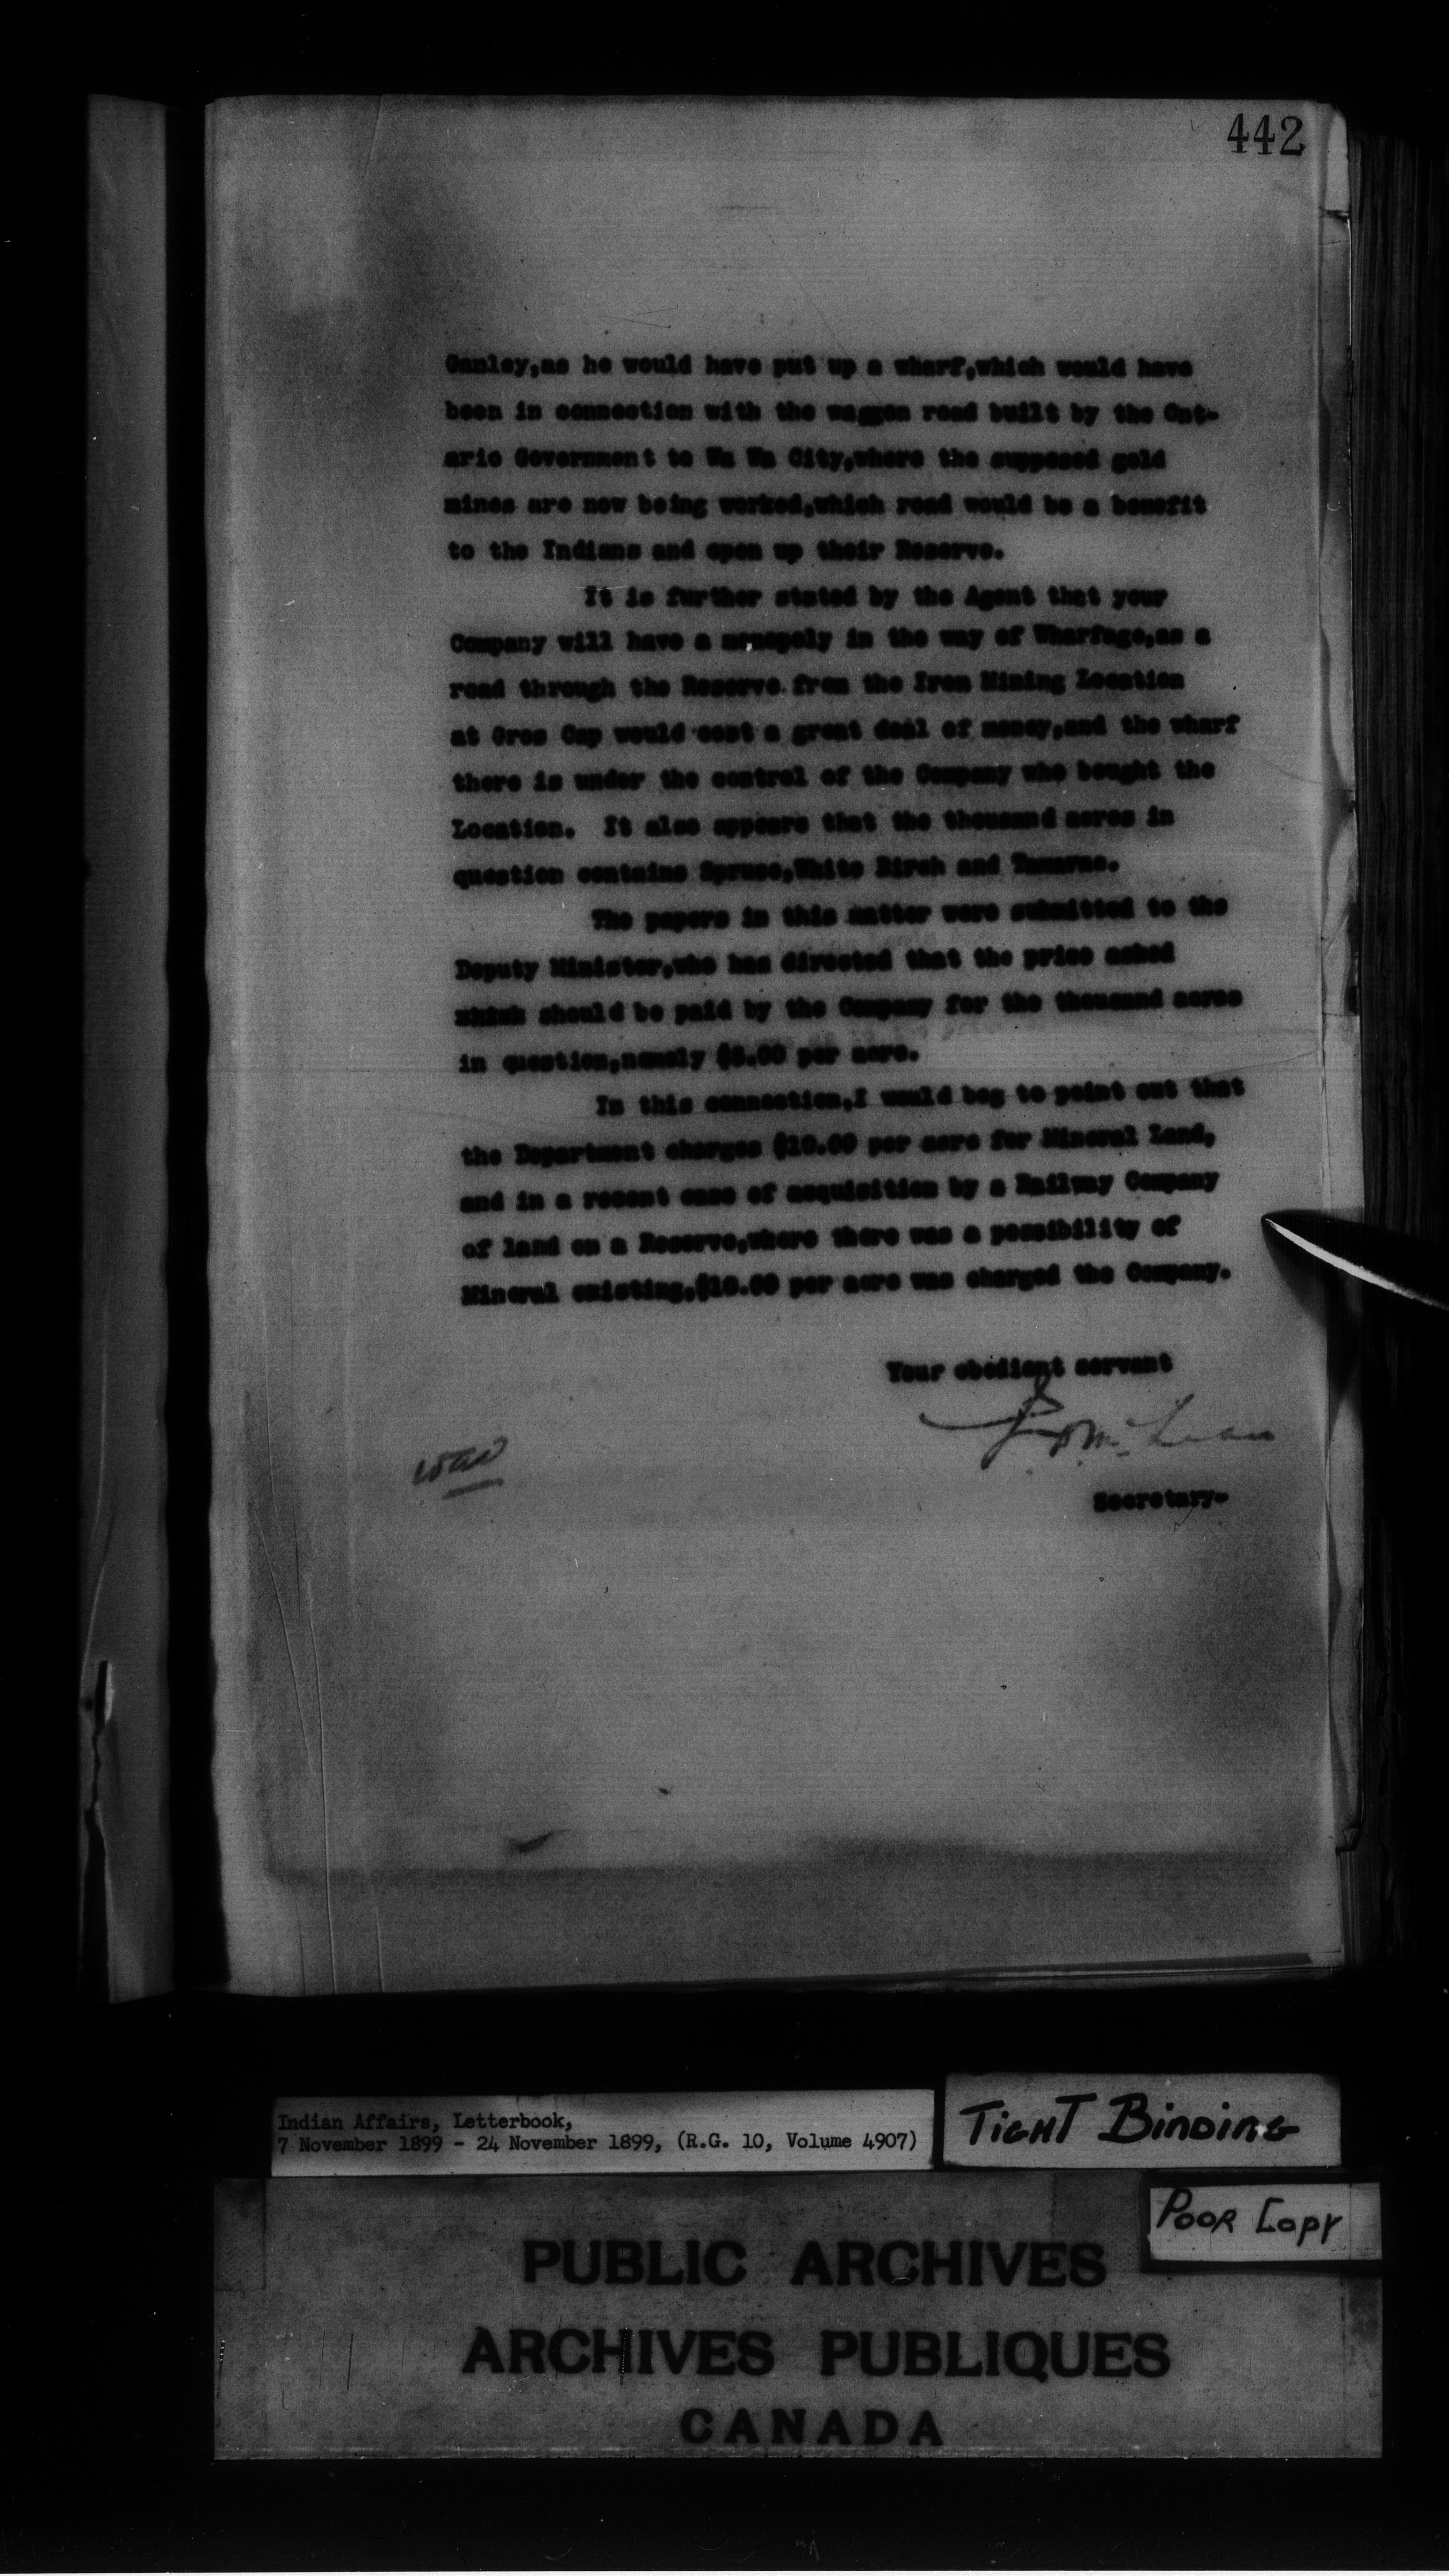 442
Ganley,as he would have put up a wharf,which would have
been in connection with the waggon road built by the Ont-
ario Government to Wa Wa City,where the supposed gold
mines are now being worked,which road would be a benefit
to the Indians and open up their Reserve.
It is further stated by the Agent that your
Company will have a monopoly in the way of Wharfage,as a
road through the Reserve from the Iron Mining Location
at Gros Cap would cost a great deal of money,and the wharf
there is under the control of the Company who bought the
Location. It also appears that the thousand acres in
question contains Spruce,White Birch and Tamarac.
The papers in this matter were submitted to the
Deputy Minister,who has directed that the price asked
should be paid by the Company for the thousand acres
in question,namely per acre.
In this connection,I would beg to point out that
the Department charges $10.00 per acre for Mineral Land,
and in a recent case of acquisition by a Railway Company
of land on a Reserve,where there was a possibility of
Mineral existing,$10.00 per acre was charged the Company.
Your obedient servant
McLean
Secretary-
Indian Affairs, Letterbook,
7 November 1899 - 24 November 1899, (R.G. 10, Volume 4907)
TIGHT BINDING
POOR COPY
PUBLIC ARCHIVES
ARCHIVES PUBLIQUES
CANADA